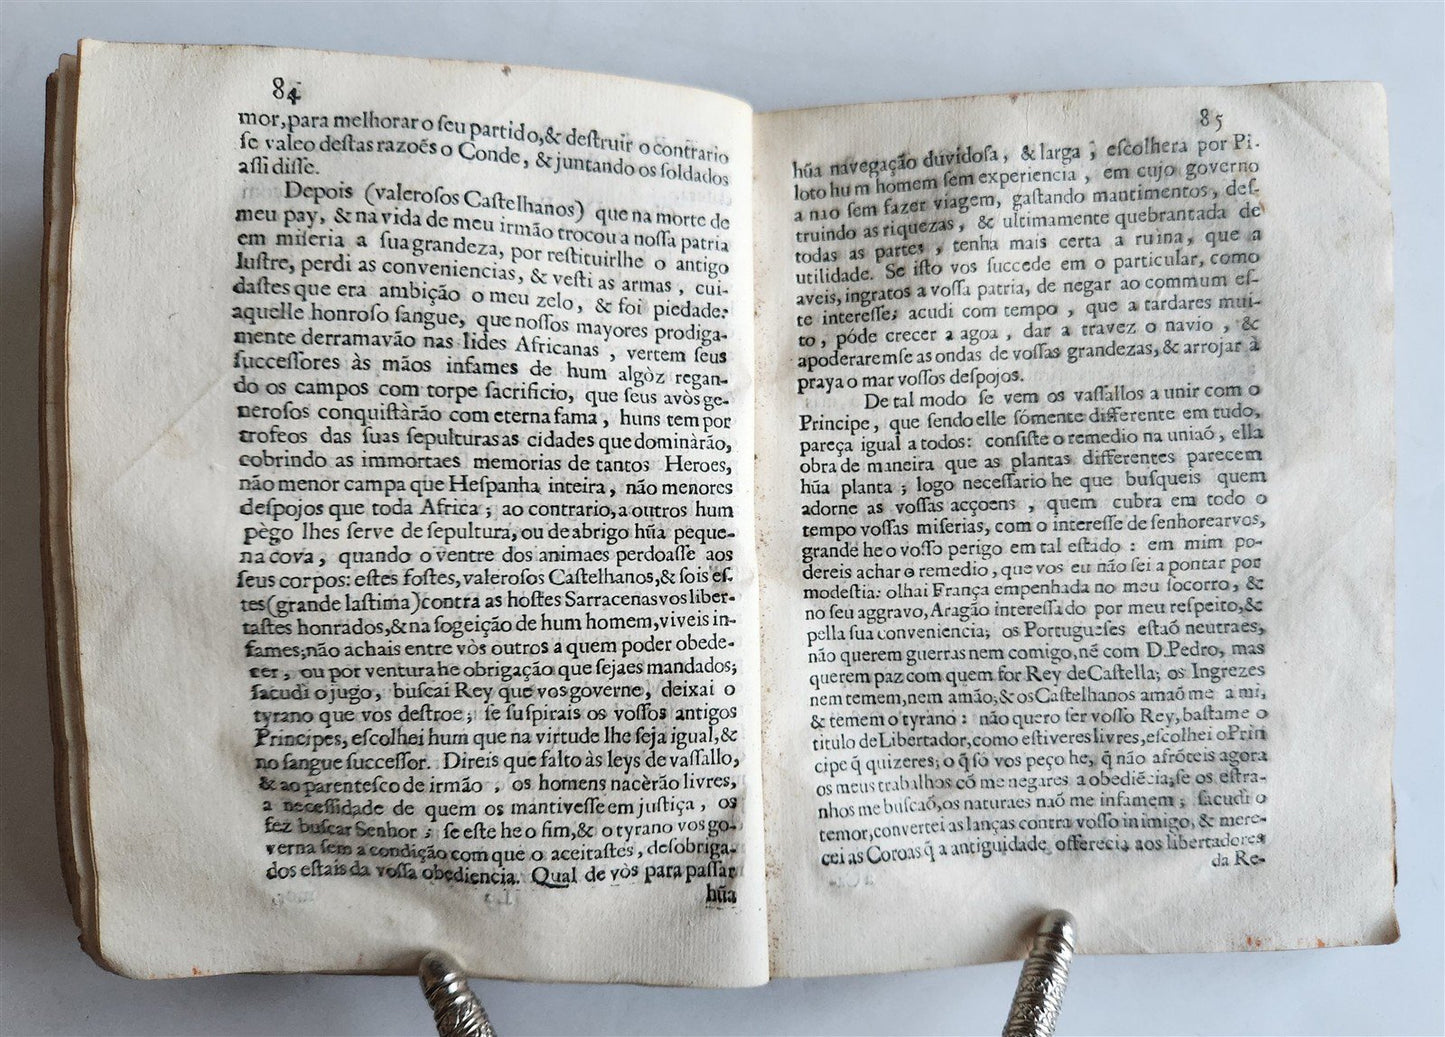 84
mor, para melhorar o ſeu partido, & deſtruir o contrario
ſe valeo deſtas razoẽs o Conde, & juntando os ſoldados
aſſi diſſe.
Depois (valeroſos Caſtelhanos) que na morte de
meu pay, & na vida de meu irmão trocou a noſſa patria
em miſeria a ſua grandeza, por reſtituirlhe o antigo
luſtre, perdi as conveniencias, & veſti as armas, cui-
daſtes que era ambição o meu zelo, & foi piedade:
aquelle honroſo ſangue, que noſſos mayores prodiga-
mente derramavão nas lides Africanas, vertem ſeus
ſucceſſores às mãos infames de hum algòz regan-
do os campos com torpe ſacrificio, que ſeus avòs ge-
neroſos conquiſtàrão com eterna fama, huns tem por
trofeos das ſuas ſepulturas as cidades que dominàrão,
cobrindo as immortaes memorias de tantos Heroes,
não menor campa que Heſpanha inteira, não menores
deſpojos que toda Africa; ao contrario, a outros hum
pègo lhes ſerve de ſepultura, ou de abrigo hũa peque-
na cova, quando o ventre dos animaes perdoaſſe aos
ſeus corpos: eſtes foſtes, valeroſos Caſtelhanos, & ſois eſ-
tes (grande laſtima) contra as hoſtes Sarracenas vos liber-
taſtes honrados, & na ſogeição de hum homem, viveis in-
fames; não achais entre vòs outros a quem poder obede-
cer, ou por ventura he obrigação que ſejaes mandados;
ſacudi o jugo, buſcai Rey que vos governe, deixai o
tyrano que vos deſtroe; ſe ſuſpirais os voſſos antigos
Principes, eſcolhei hum que na virtude lhe ſeja igual, &
no ſangue ſucceſſor. Direis que falto às leys de vaſſallo,
& ao parenteſco de irmão, os homens nacèrão livres,
a neceſſidade de quem os mantiveſſe em juſtiça, os
fez buſcar Senhor; ſe eſte he o fim, & o tyrano vos go-
verna ſem a condição com que o aceitaſtes, deſobriga-
dos eſtais da voſſa obediencia. Qual de vòs para paſſar
hũa
85
hũa navegação duvidoſa, & larga, eſcolhera por Pi-
loto hum homem ſem experiencia, em cujo governo
a nao ſem fazer viagem, gaſtando mantimentos, deſ-
truindo as riquezas, & ultimamente quebrantada de
todas as partes, tenha mais certa a ruina, que a
utilidade. Se iſto vos ſuccede em o particular, como
aveis, ingratos a voſſa patria, de negar ao commum eſ-
te intereſſe; acudi com tempo, que a tardares mui-
to, póde crecer a agoa, dar a travez o navio, &
apoderaremſe as ondas de voſſas grandezas, & arrojar à
praya o mar voſſos deſpojos.
De tal modo ſe vem os vaſſallos a unir com o
Principe, que ſendo elle ſómente differente em tudo,
pareça igual a todos: conſiſte o remedio na uniaõ, ella
obra de maneira que as plantas differentes parecem
hũa planta; logo neceſſario he que buſqueis quem
adorne as voſſas acçoens, quem cubra em todo o
tempo voſſas miſerias, com o intereſſe de ſenhorearvos,
grande he o voſſo perigo em tal eſtado: em mim po-
dereis achar o remedio, que vos eu não ſei apontar por
modeſtia: olhai França empenhada no meu ſocorro, &
no ſeu aggravo, Aragão intereſſado por meu reſpeito, &
pella ſua conveniencia; os Portugueſes eſtaõ neutraes,
não querem guerras nem comigo, nẽ com D. Pedro, mas
querem paz com quem for Rey de Caſtella; os Ingrezes
nem temem, nem amão; & os Caſtelhanos amaõ me a mi,
& temem o tyrano: não quero ſer voſſo Rey, baſtame o
titulo de Libertador, como eſtiveres livres, eſcolhei o Prin
cipe q̃ quizeres; o q̃ ſó vos peço he, q̃ não afróteis agora
os meus trabalhos cõ me negares a obediẽcia; ſe os eſtra-
nhos me buſcaõ, os naturaes naõ me infamem; ſacudi o
temor, convertei as lanças contra voſſo inimigo, & mere-
cei as Coroas q̃ a antiguidade offerecia aos libertadores
da Re-